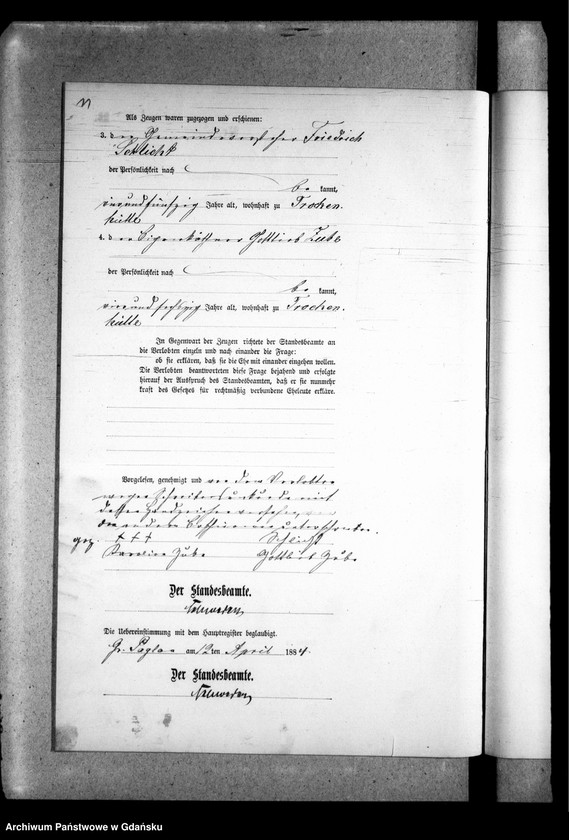 Als Zeugen waren zugezogen und erschienen:
3. der Gemeindevorsteher Friedrich
Schlicht
der Persönlichkeit nach
be kannt,
vierundfünfzig Jahre alt, wohnhaft zu Trocken-
hütte
4. der Eigenkäthner Gottlieb Zube
der Persönlichkeit nach
be kannt,
vierundsechzig Jahre alt, wohnhaft zu Trocken-
hütte
In Gegenwart der Zeugen richtete der Standesbeamte an
die Verlobten einzeln und nach einander die Frage:
ob sie erklären, daß sie die Ehe mit einander eingehen wollen.
Die Verlobten beantworteten diese Frage bejahend und erfolgte
hierauf der Ausspruch des Standesbeamten, daß er sie nunmehr
kraft des Gesetzes für rechtmäßig verbundene Eheleute erkläre.
Vorgelesen, genehmigt und von dem Verlobten
wegen Schreibensunkunde mit
dessen Handzeichen versehen, von
den anderen unterschrieben.
gez. + + + Schlicht
Karoline Zube Gottlieb Zube
Der Standesbeamte.
Die Uebereinstimmung mit dem Hauptregister beglaubigt.
Gr. Paglau am 12ten April 1884.
Der Standesbeamte.
Archiwum Państwowe w Gdańsku